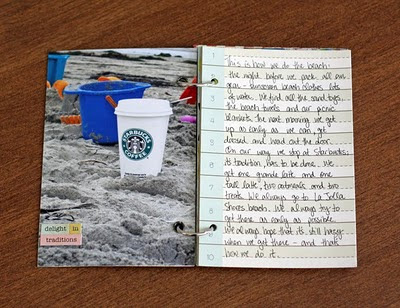 STARBUCKS
COFFEE
delight in
traditions
1
This is how we do the beach.
2
the night before we pack all our
gear - sunscreen, beach clothes, lots
3
of water. We find all the sand toys,
the beach towels and our picnic
4
blankets. the next morning we get
up as early as we can, get
5
dressed and head out the door.
On our way we stop at Starbucks;
6
its tradition, has to be done. We
get one grande latte and one
7
tall latte, two oatmeals and two
treats. We always go to La Jolla
8
Shores beach. We always try to
get there as early as possible.
9
We always hope that its still hazy
when we get there - and that's
10
how we do it.